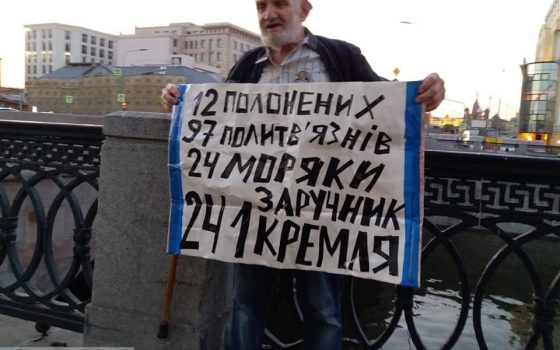 12 ПОЛОНЕНИХ
97 ПОЛИТВ'ЯЗНІВ
24 МОРЯКИ
ЗАРУЧНИК
241 КРЕМЛЯ